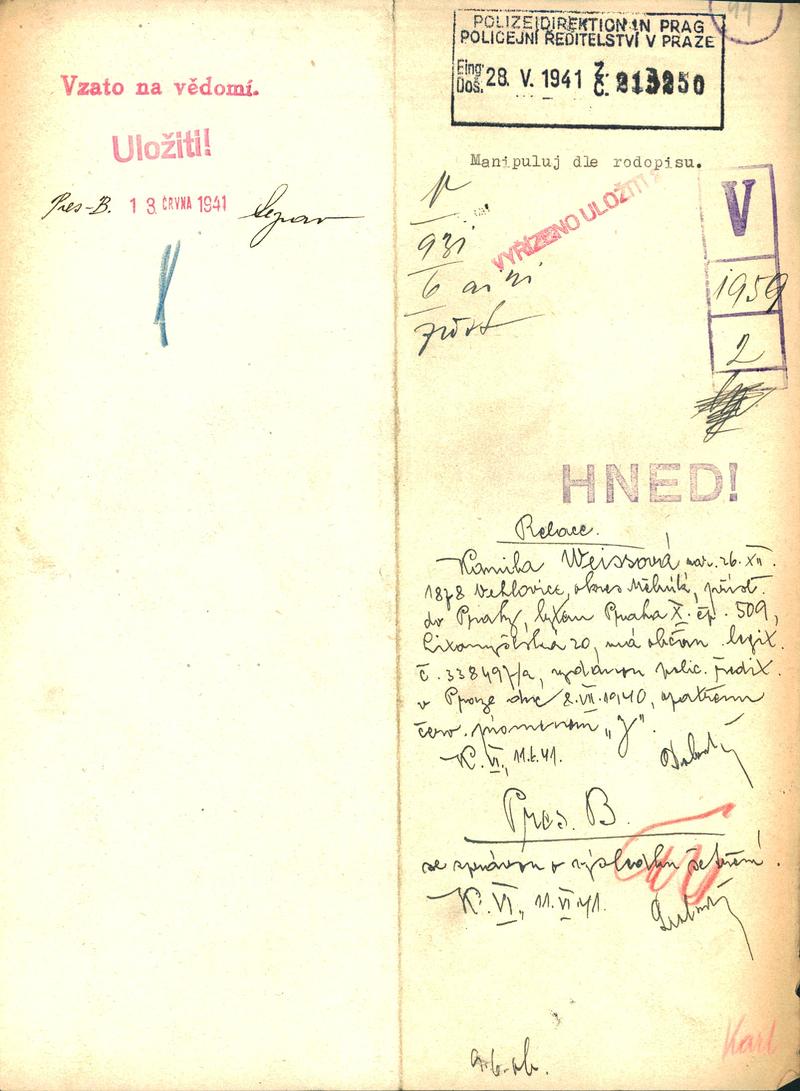 Vzato na vědomí.
Uložiti!
Pres-B. 13 ČRVNA 1941
91
POLIZEIDIREKTION IN PRAG
POLICEJNÍ ŘEDITELSTVÍ V PRAZE
Eing. Doš. 28. V. 1941 Z. Č. 213250
Manipuluj dle rodopisu.
VYŘÍZENO ULOŽITI
V
1959
2
HNED!
Relace.
Kamila Weissová nar. 26. XII.
1878 Vehlovice, okres Mělník, přísl.
do Prahy, bytem Praha X. čp. 509,
Litomyšlská 20, má občan. legit.
č. 338497/a, vydanou polic. ředit.
v Praze dne 8. VII. 1940, opatřenou
červ. písmenem „J".
K. VI.,
Pres. B.
se zprávou o výsledku šetření.
K. VI., 11. VI. 41.
Karl